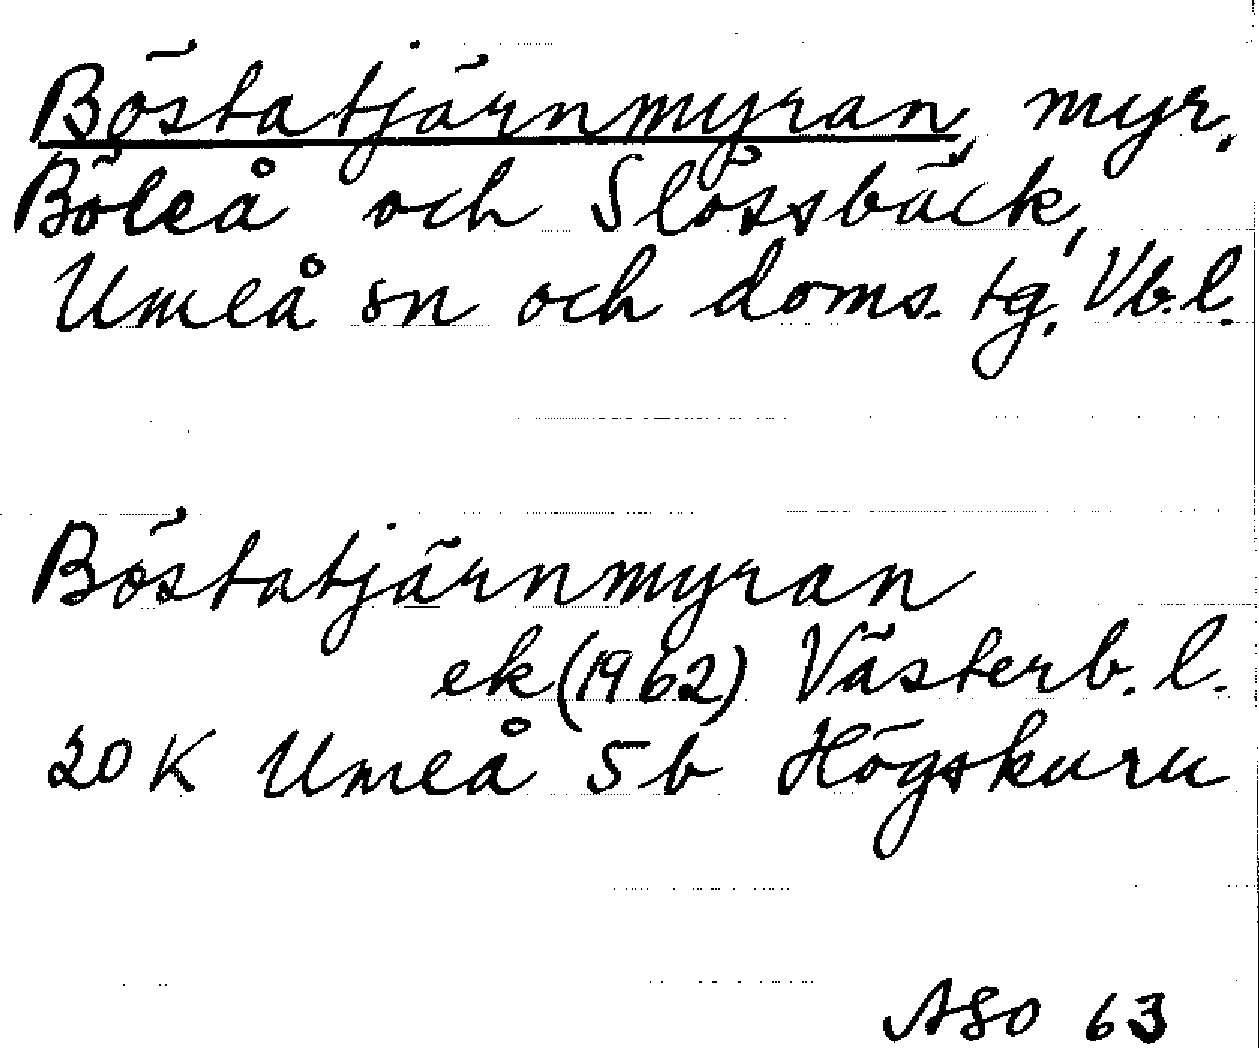 Böstatjärnmyran, myr.
Böleå och Slössbäck,
Umeå sn och doms. tg, Vb.l.
Böstatjärnmyran
ek (1962) Västerb. l.
20 K Umeå 5b Högskuru
ASO 63